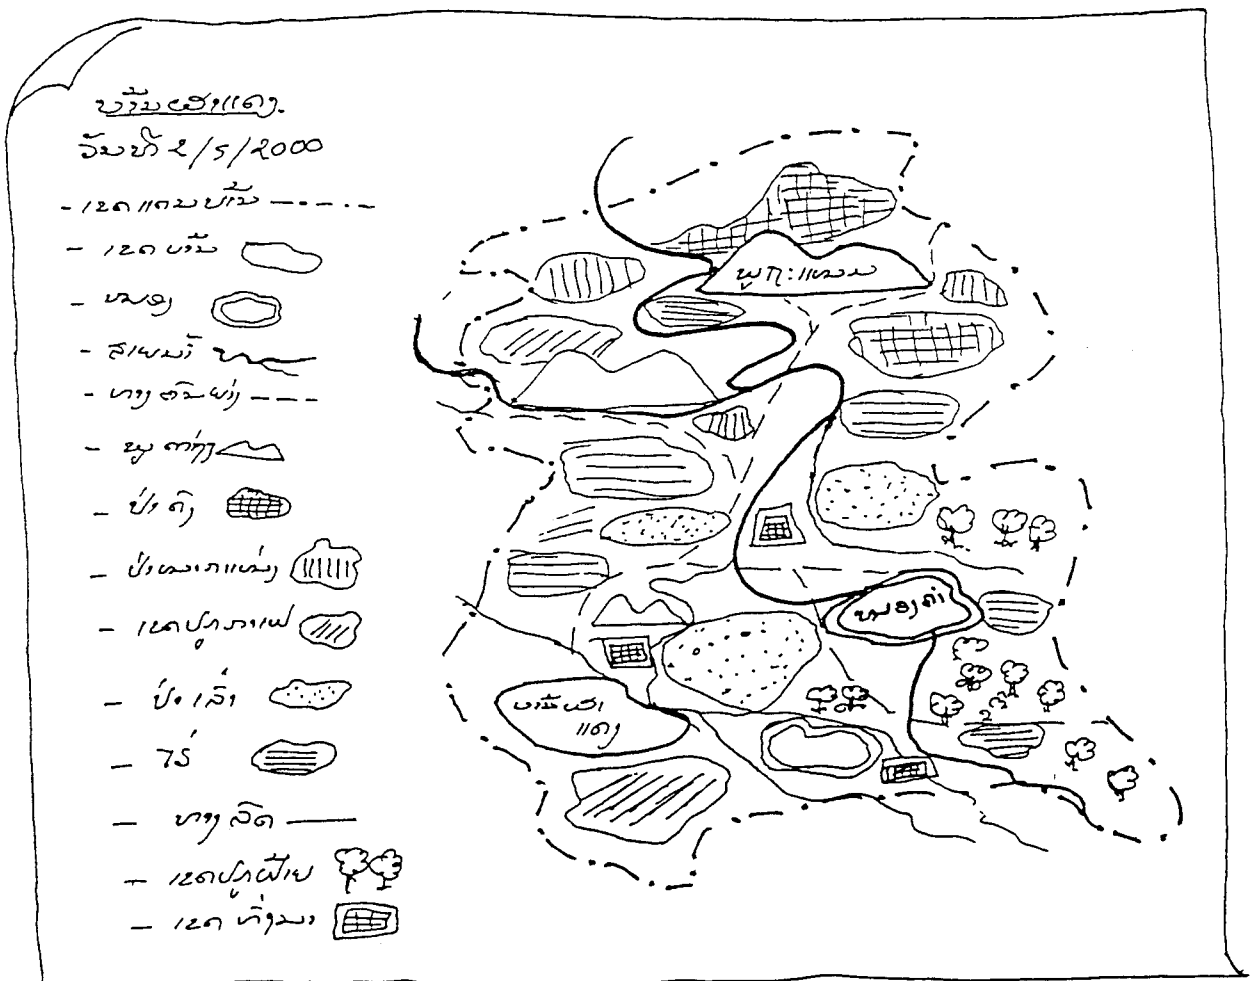 ບ້ານຜາແດງ
ວັນທີ 2/5/2000
- ເຂດແດນບ້ານ
- ເຂດບ້ານ
- ໜອງ
- ສາຍນໍ້າ
- ທາງຄົນຍ່າງ
- ພູ
- ປ່າດົງ
- ປ່າ
- ເຂດປູກກາເຟ
- ປ່າເລົ່າ
- ໄຮ່
- ທາງລົດ
- ເຂດປູກຝ້າຍ
- ເຂດທົ່ງນາ
ໜອງຄໍາ
ບ້ານຜາ
ແດງ